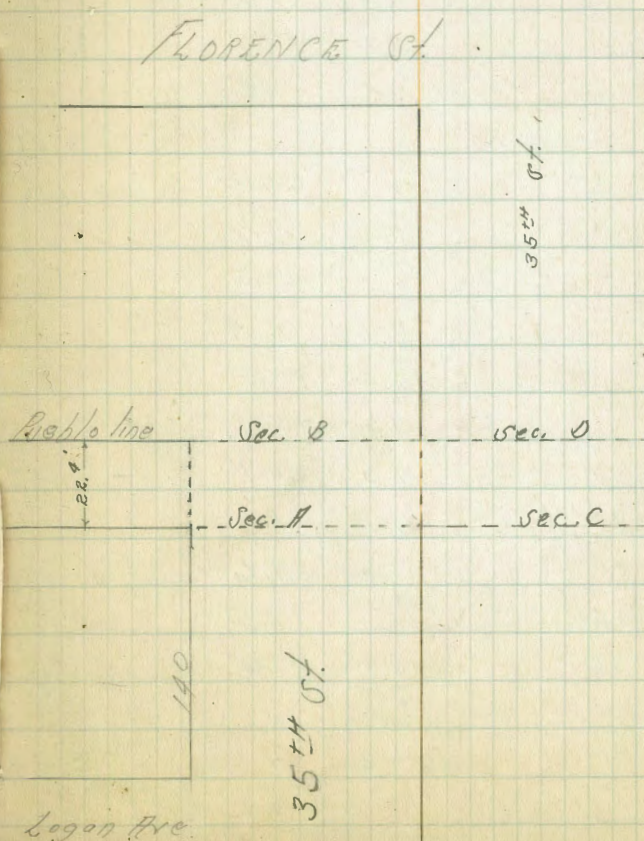 FLORENCE St.
35TH St.
Pueblo line
Sec. B
Sec. D
22.4'
Sec. A
Sec. C
140
35TH St.
Logan Ave.